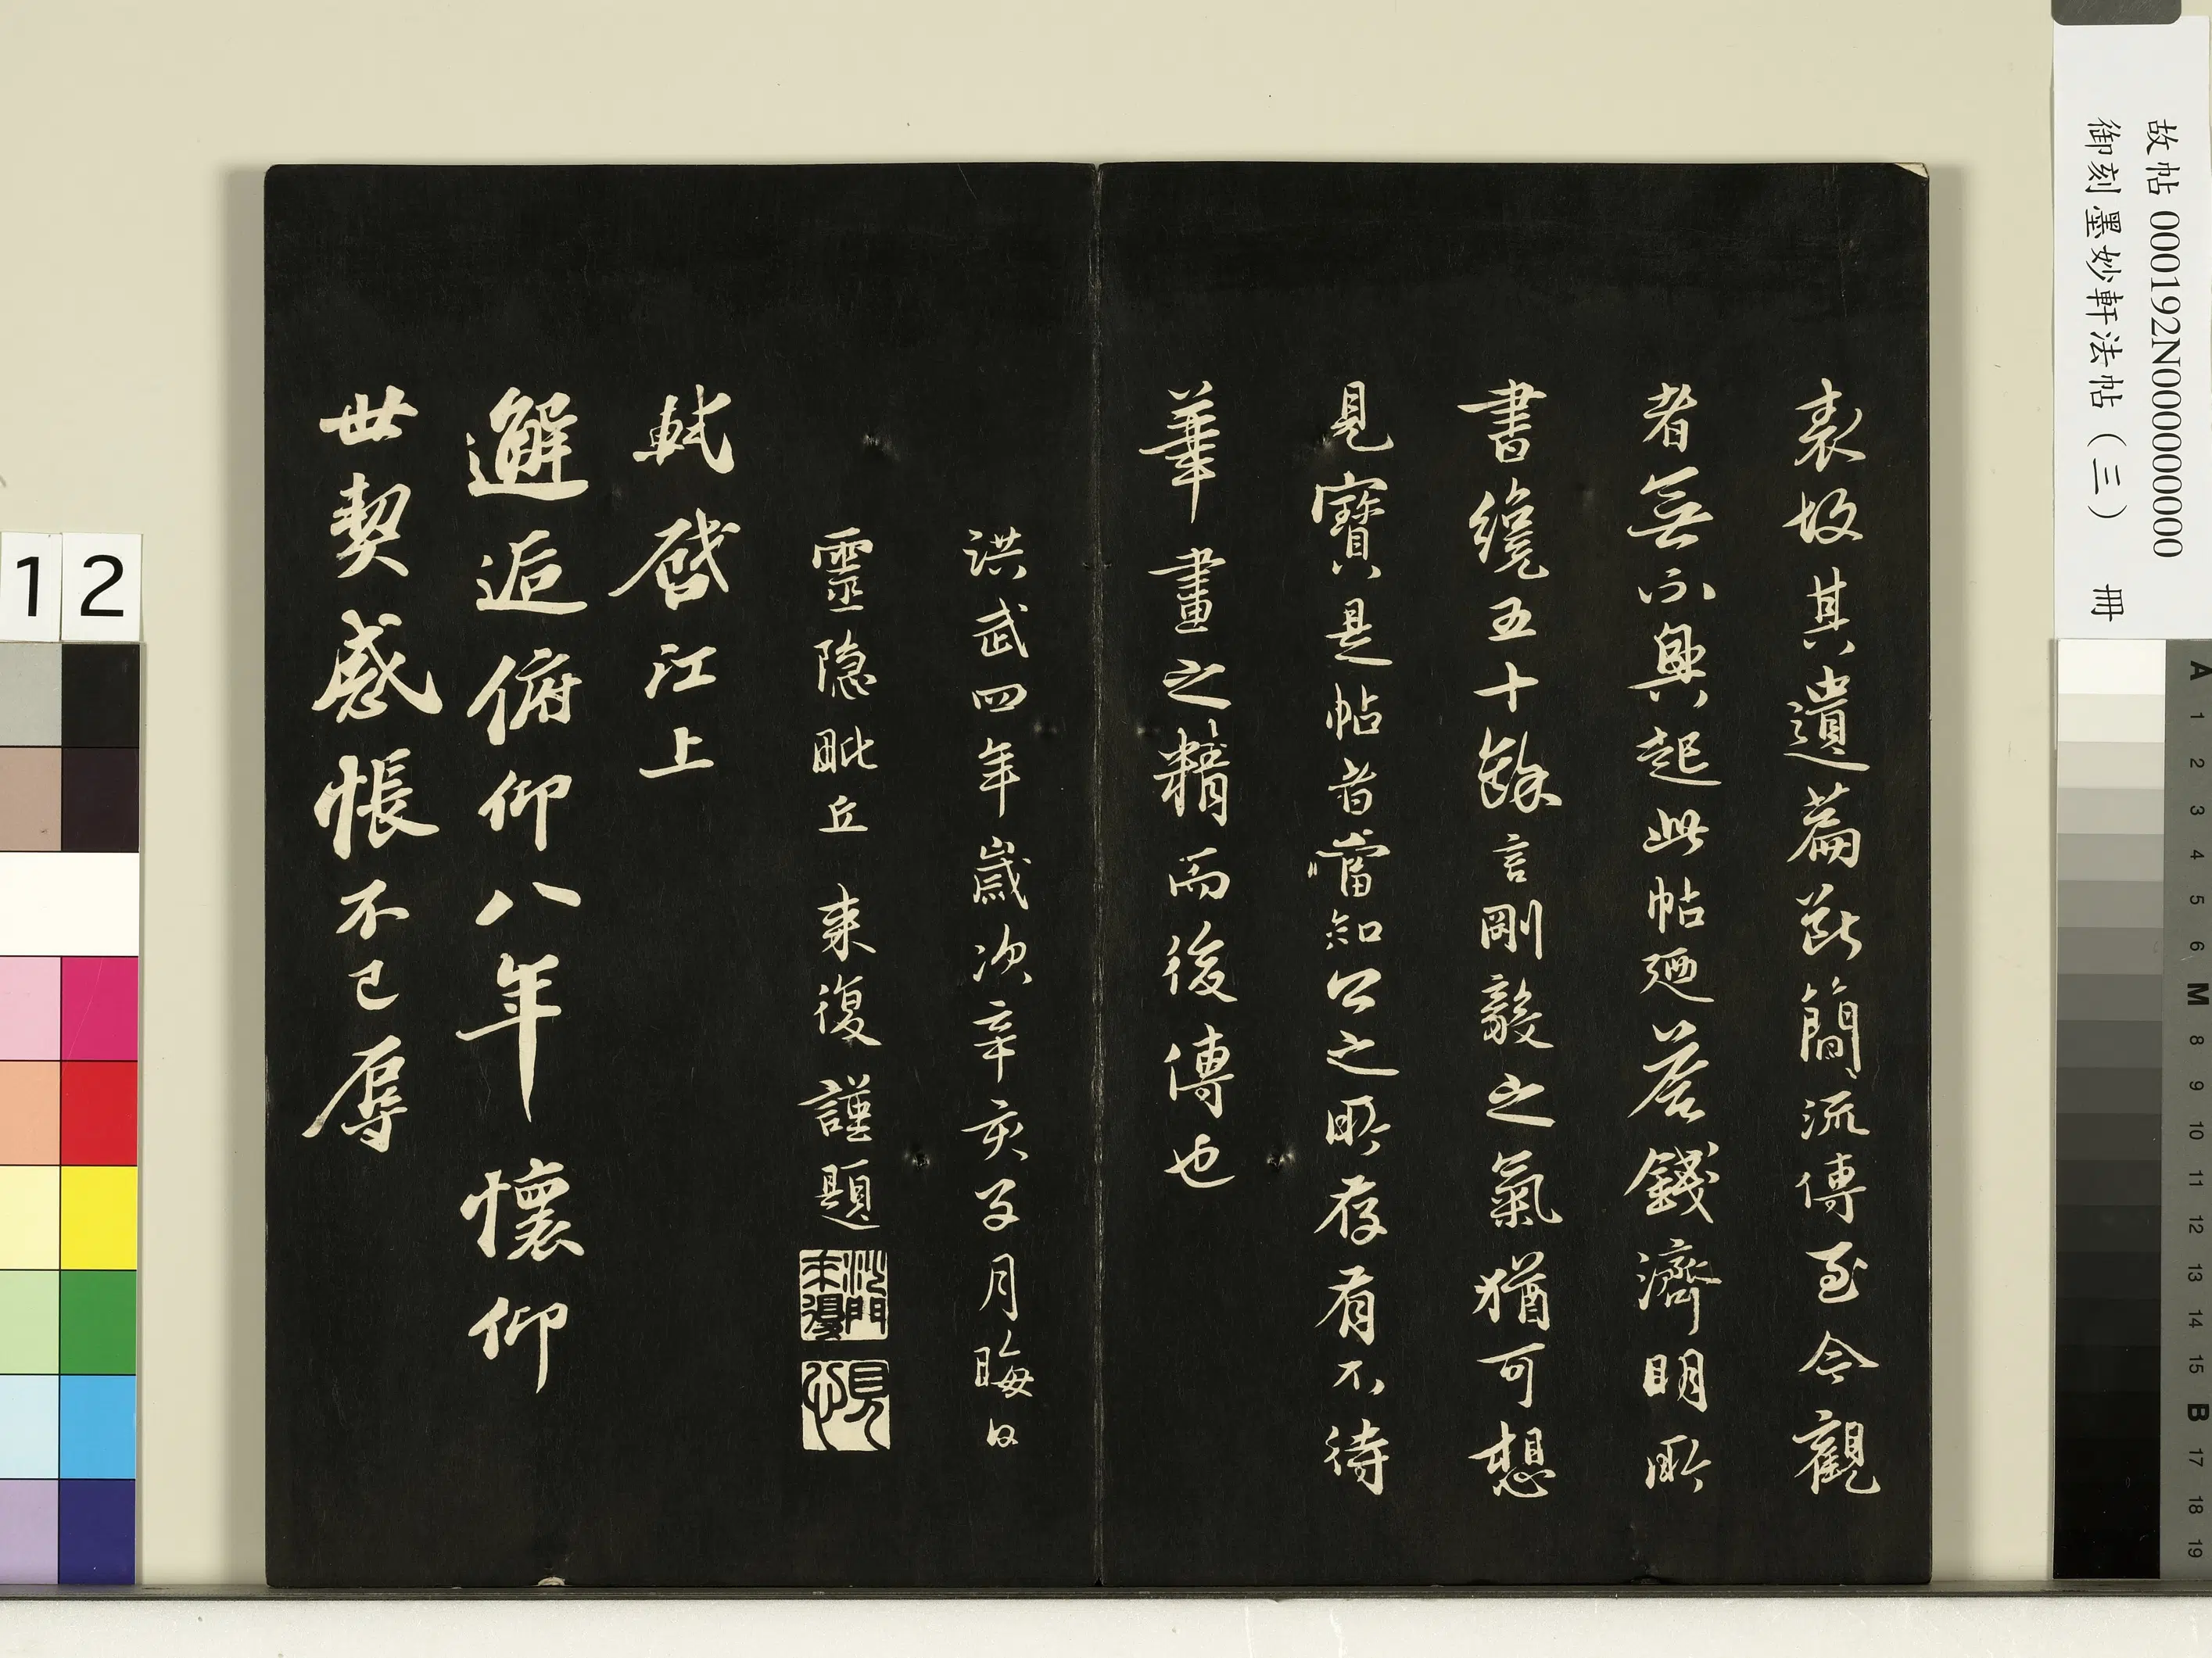 故帖 000192N000000000
御刻墨妙軒法帖（三） 冊
表故其遺篇斷簡流傳至今觀
者無不興起此帖廼荅錢濟明所
書纔五十餘言剛毅之氣猶可想
見寶是帖者當知公之所存有不待
華畫之精而後傳也
洪武四年歲次辛亥子月晦日
靈隱毗丘來復謹題
沙門來復
見心
軾啓江上
邂逅俯仰八年懷仰
世契感悵不已辱
12
A 1 2 3 4 5 6 M 8 9 10 11 12 13 14 15 B 17 18 19